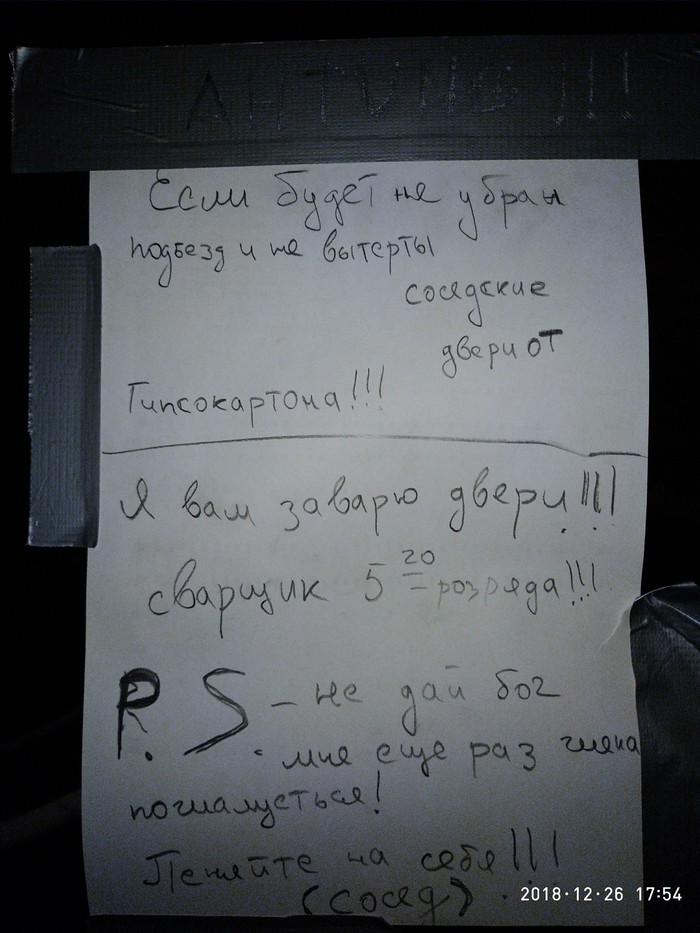 Если будет не убран
подъезд и не вытерты
соседские
двери от
Гипсокартона!!!
Я вам заварю двери!!!
сварщик 5 го розряда!!!
P.S. - не дай бог
мне еще раз
Пеняйте на себя!!!
(сосед)
2018·12·26 17:54